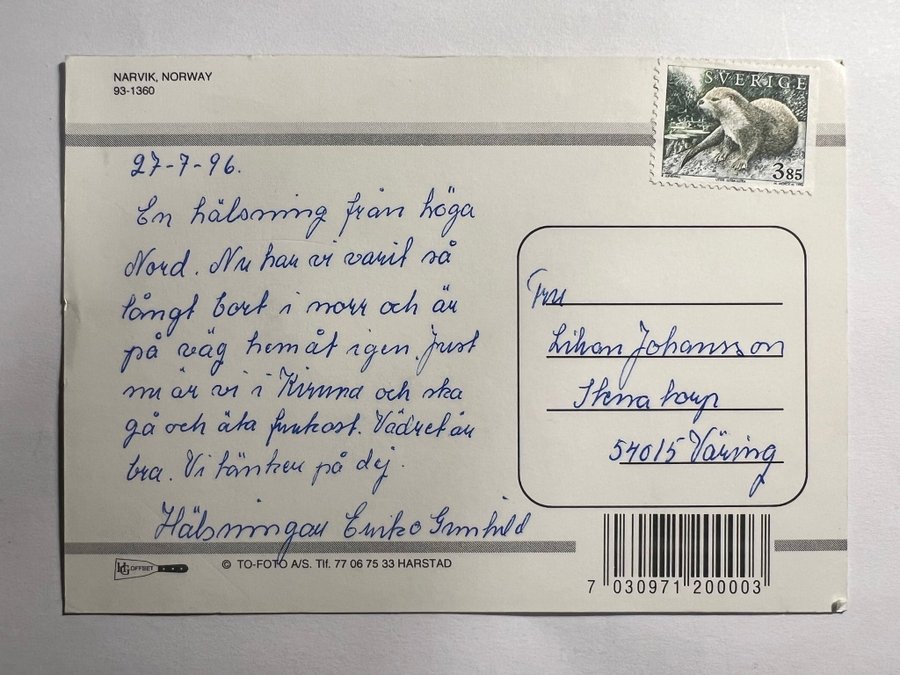 NARVIK, NORWAY
93-1360
SVERIGE
3.85
27-7-96.
En hälsning från höga
Nord. Nu har vi varit så
långt bort i norr och är
på väg hemåt igen. Just
nu är vi i Kiruna och ska
gå och äta frukost. Vädret är
bra. Vi tänker på dej.
Hälsningar Gunhild
Fru
Johansson
Stena torp
54015 Väring
HG OFFSET
© TO-FOTO A/S. Tlf. 77 06 75 33 HARSTAD
7 030971 200003